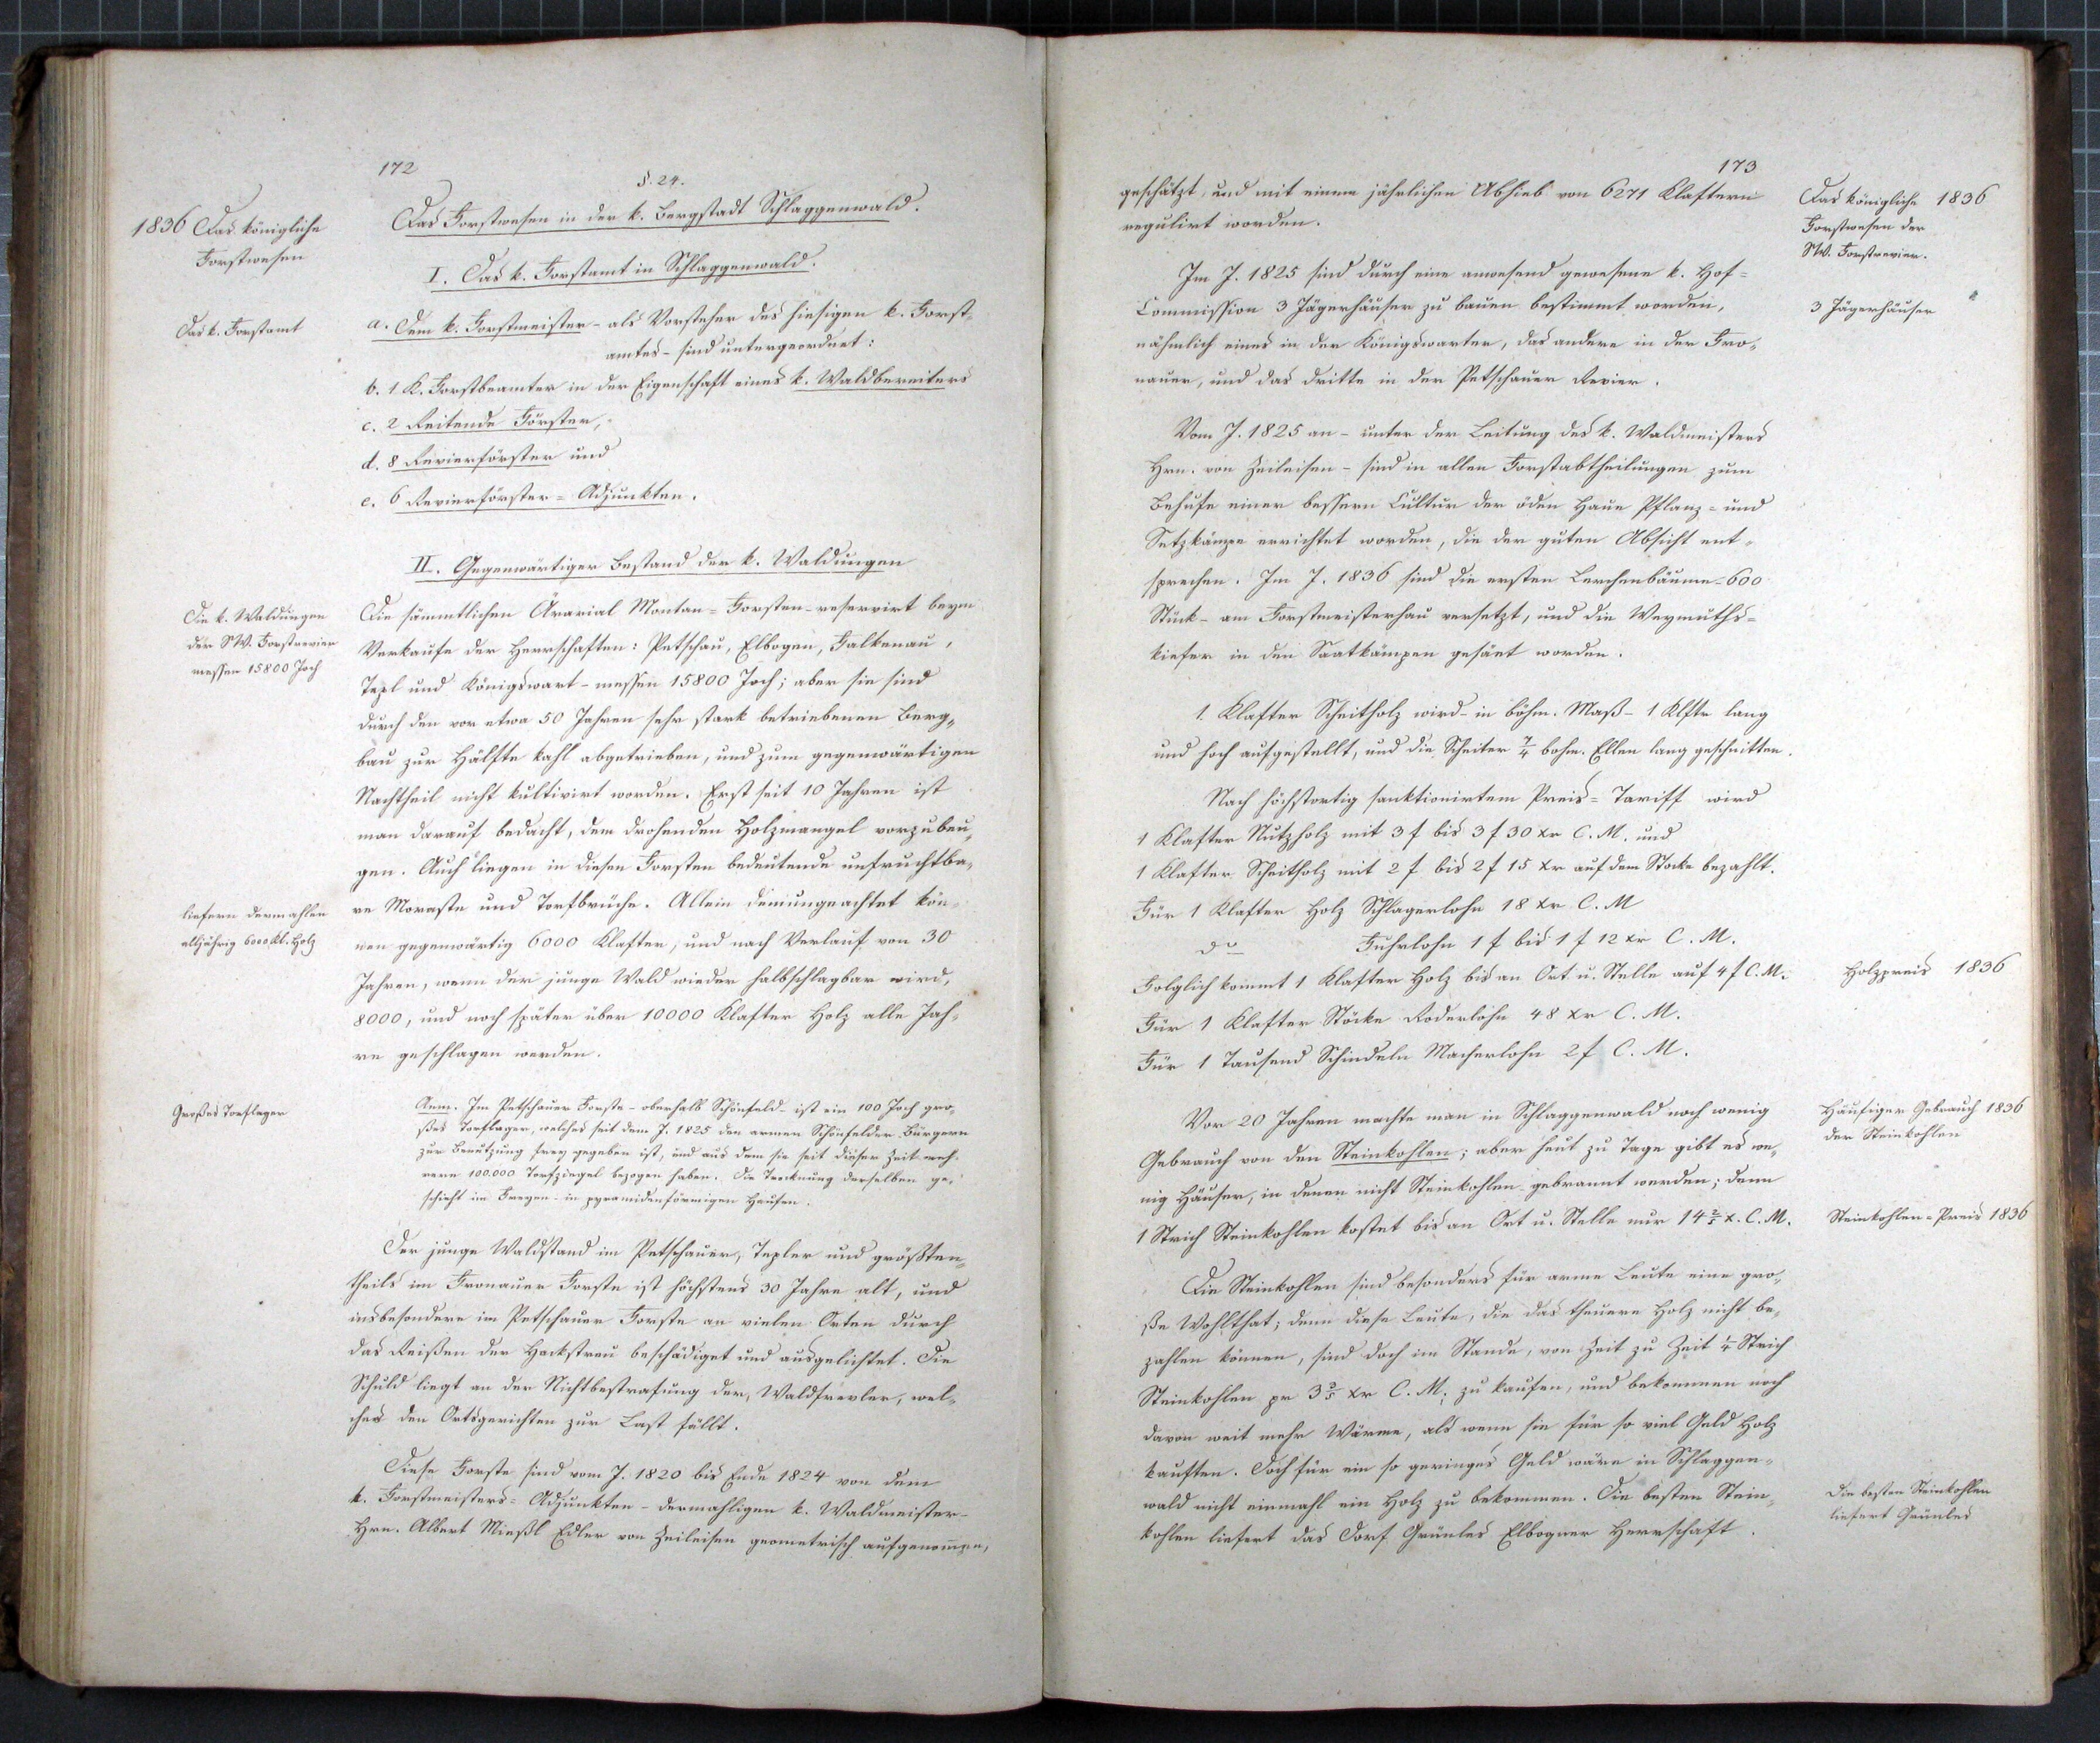 172
§. 24.
1836 Das königliche
Forstwesen
Das Forstwesen in der k. Bergstadt Schlaggenwald.
I. Das k. Forstamt in Schlaggenwald.
Das k. Forstamt
a. Dem k. Forstmeister - als Vorsteher des hiesigen k. Forst-
amtes - sind untergeordnet:
b. 1 K. Forstbeamter in der Eigenschaft eines k. Waldbereiters
c. 2 Reitende Förster,
d. 8 Revierförster und
e. 6 Revierförster = Adjunkten.
II. Gegenwärtiger Bestand der k. Waldungen
Die k. Waldungen
der SW. Forstrevier
messen 15800 Joch
Die sämmtlichen Ärarial Montan = Forsten - reservirt beym
Verkaufe der Herrschaften: Petschau, Elbogen, Falkenau,
Tepl und Königswart - messen 15800 Joch; aber sie sind
durch den vor etwa 50 Jahren sehr stark betriebenen Berg-
bau zur Hälfte kahl abgetrieben, und zum gegenwärtigen
Nachtheil nicht kultivirt worden. Erst seit 10 Jahren ist
man darauf bedacht, dem drohenden Holzmangel vorzubeu-
gen. Auch liegen in diesen Forsten bedeutende unfruchtba-
re Moraste und Torfbrüche. Allein demungeachtet kön-
liefern dermahlen
alljährig 6000 Kl. Holz
nen gegenwärtig 6000 Klafter, und nach Verlauf von 30
Jahren, wenn der junge Wald wieder halbschlagbar wird,
8000, und noch später über 10000 Klafter Holz alle Jah-
re geschlagen werden.
Großes Torflager
Anm. Im Petschauer Forste - oberhalb Schönfeld - ist ein 100 Joch gro-
ßes Torflager, welches seit dem J. 1825 den armen Schönfelder Bürgern
zur Benützung frey gegeben ist, und aus dem sie seit dieser Zeit meh-
rere 100.000 Torfziegel bezogen haben. Die Trocknung derselben ge-
schieht im Freyen - in pyramidenförmigen Haufen.
Der junge Waldstand im Petschauer, Tepler und größten-
theils im Fronauer Forste ist höchstens 30 Jahre alt, und
insbesondere im Petschauer Forste an vielen Orten durch
das Reißen der Hackstreu beschädiget und ausgelichtet. Die
Schuld liegt an der Nichtbestrafung der Waldfrevler, wel-
ches den Ortsgerichten zur Last fällt.
Diese Forste sind vom J. 1820 bis Ende 1824 von dem
k. Forstmeisters = Adjunkten - dermahligen k. Waldmeister -
Hrn. Albert Mießl Edler von Zeileisen geometrisch aufgenom̅en,
173
geschätzt, und mit einem jährlichen Abhieb von 6271 Klaftern
regulirt worden.
Das königliche 1836
Forstwesen der
SW. Forstrevier.
Im J. 1825 sind durch eine anwesend gewesene k. Hof =
Commission 3 Jägerhäuser zu bauen bestimmt worden,
3 Jägerhäuser
nähmlich eines in der Königswarter, das andere in der Fro-
nauer, und das dritte in der Petschauer Revier.
Vom J. 1825 an - unter der Leitung des k. Waldmeisters
Hrn. von Zeileisen - sind in allen Forstabtheilungen zum
Behufe einer bessern Cultur der öden Haue Pflanz = und
Setzkämpe errichtet worden, die der guten Absicht ent-
sprechen. Im J. 1836 sind die ersten Lerchenbäume - 600
Stück - am Forstmeisterhau versetzt, und die Weymuths =
kiefer in den Saatkämpen gesäet worden.
1. Klafter Scheitholz wird - in böhm. Maß - 1 Klftr lang
und hoch aufgestellt, und die Scheiter 7/4 böhm. Ellen lang geschnitten.
Nach höchstortig sanktionirtem Preis = Tariff wird
1 Klafter Nutzholz mit 3 f bis 3 f 30 xr C. M. und
1 Klafter Scheitholz mit 2 f bis 2 f 15 xr auf dem Stocke bezahlt.
Für 1 Klafter Holz Schlagerlohn 18 xr C. M
do Fuhrlohn 1 f bis 1 f 12 xr C. M.
Folglich kommt 1 Klafter Holz bis an Ort u. Stelle auf 4 f C. M.
Holzpreis 1836
Für 1 Klafter Stöcke Roderlohn 48 xr C. M.
Für 1 Tausend Schindeln Macherlohn 2 f C. M.
Vor 20 Jahren machte man in Schlaggenwald noch wenig
Häufiger Gebrauch 1836
der Steinkohlen
Gebrauch von den Steinkohlen; aber heut zu Tage gibt es we-
nig Häuser, in denen nicht Steinkohlen gebrannt werden; denn
1 Strich Steinkohlen kostet bis an Ort u. Stelle nur 14 2/5 x. C. M.
Steinkohlen = Preis 1836
Die Steinkohlen sind besonders für arme Leute eine gro-
ße Wohlthat; denn diese Leute, die das theuere Holz nicht be-
zahlen können, sind doch im Stande, von Zeit zu Zeit 1/4 Strich
Steinkohlen pr 3 3/5 xr C. M. zu kaufen, und bekommen noch
davon weit mehr Wärme, als wenn sie für so viel Geld Holz
kauften. Doch für ein so geringes Geld wäre in Schlaggen-
wald nicht einmahl ein Holz zu bekommen. Die besten Stein-
kohlen liefert das Dorf Grünles Elbogner Herrschaft.
Die besten Steinkohlen
liefert Grünles